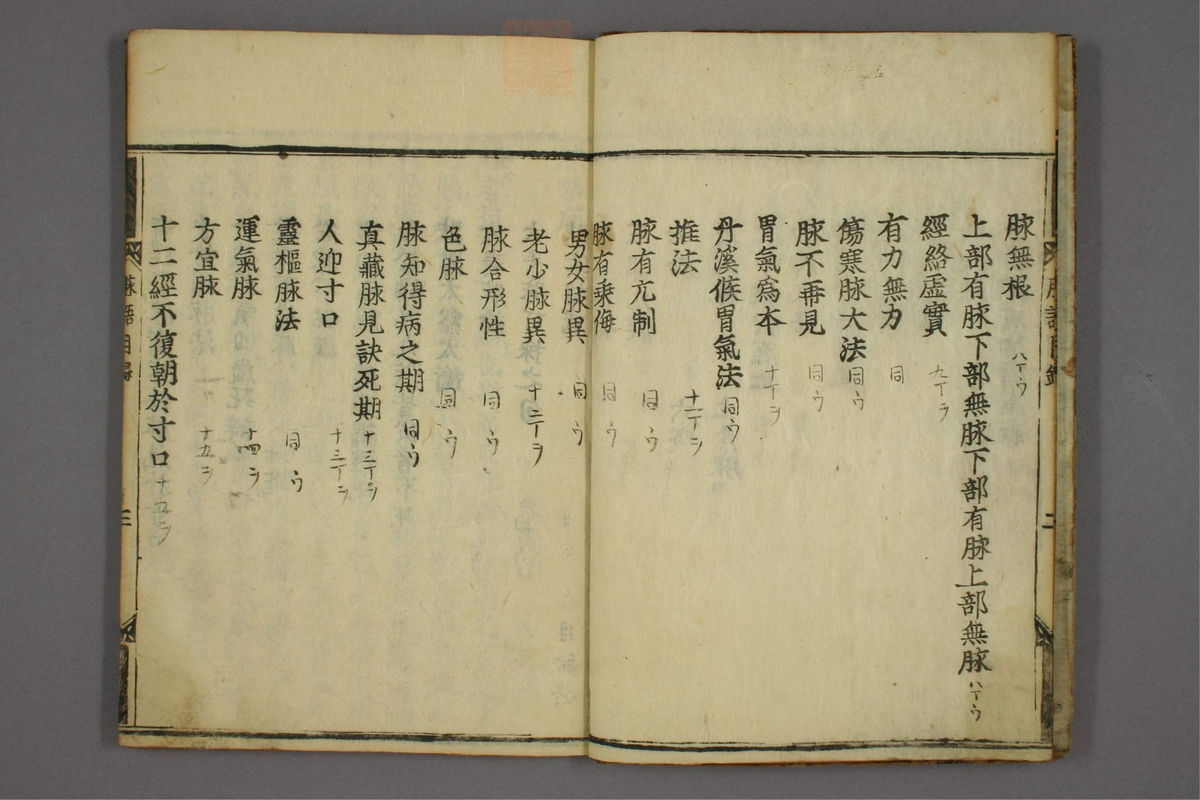 脉無根 八丁ウ
上部有脉下部無脉下部有脉上部無脉 八丁ウ
經絡虛實 九丁ヲ
有力無力 同
傷寒脉大法 同ウ
脉不再見 同ウ
胃氣爲本 十丁ヲ
丹溪候胃氣法 同ウ
推法 十一丁ヲ
脉有亢制 同ウ
脉有乗侮 同ウ
男女脉異 同ウ
老少脉異 十二丁ヲ
脉合形性 同ウ
色脉 同ウ
脉知得病之期 同ウ
真藏脉見訣死期 十三丁ヲ
人迎寸口 十三丁ヲ
靈樞脉法 同ウ
運氣脉 十四ヲ
方宜脉 十五ヲ
十二經不復朝於寸口 十五ヲ
脉語目録
三